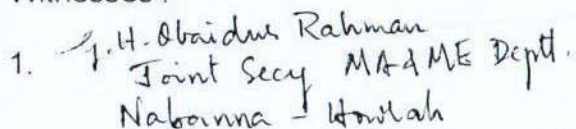 1. G.H. Obaidur Rahman
Joint Secy MA&ME Deptt.
Nabanna - Howrah